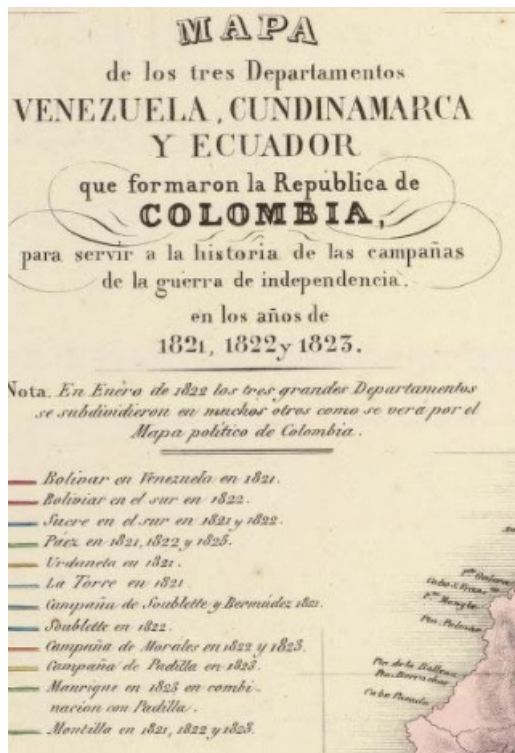 MAPA
de los tres Departamentos
VENEZUELA, CUNDINAMARCA
Y ECUADOR
que formaron la República de
COLOMBIA,
para servir a la historia de las campañas
de la guerra de independencia.
en los años de
1821, 1822 y 1823.
Nota. En Enéro de 1822 los tres grandes Departamentos
se subdividieron en muchos otros como se verá por el
Mapa político de Colombia.
Bolívar en Venezuela en 1821.
Boliviar en el sur en 1822.
Sucre en el sur en 1821 y 1822.
Páez en 1821, 1822 y 1823.
Urdaneta en 1821.
La Torre en 1821.
Campaña de Soublette y Bermúdez 1821.
Soublette en 1822.
Campaña de Morales en 1822 y 1823.
Campaña de Padilla en 1823.
Manrique en 1823 en combi-
nacion con Padilla.
Montilla en 1821, 1822 y 1823.
Pta. Galera
Cabo S. Franc
Pta. Mangle
Pta. Palmar
Pta. de la Ballena
Pta. Borrachos
Cabo Pasado